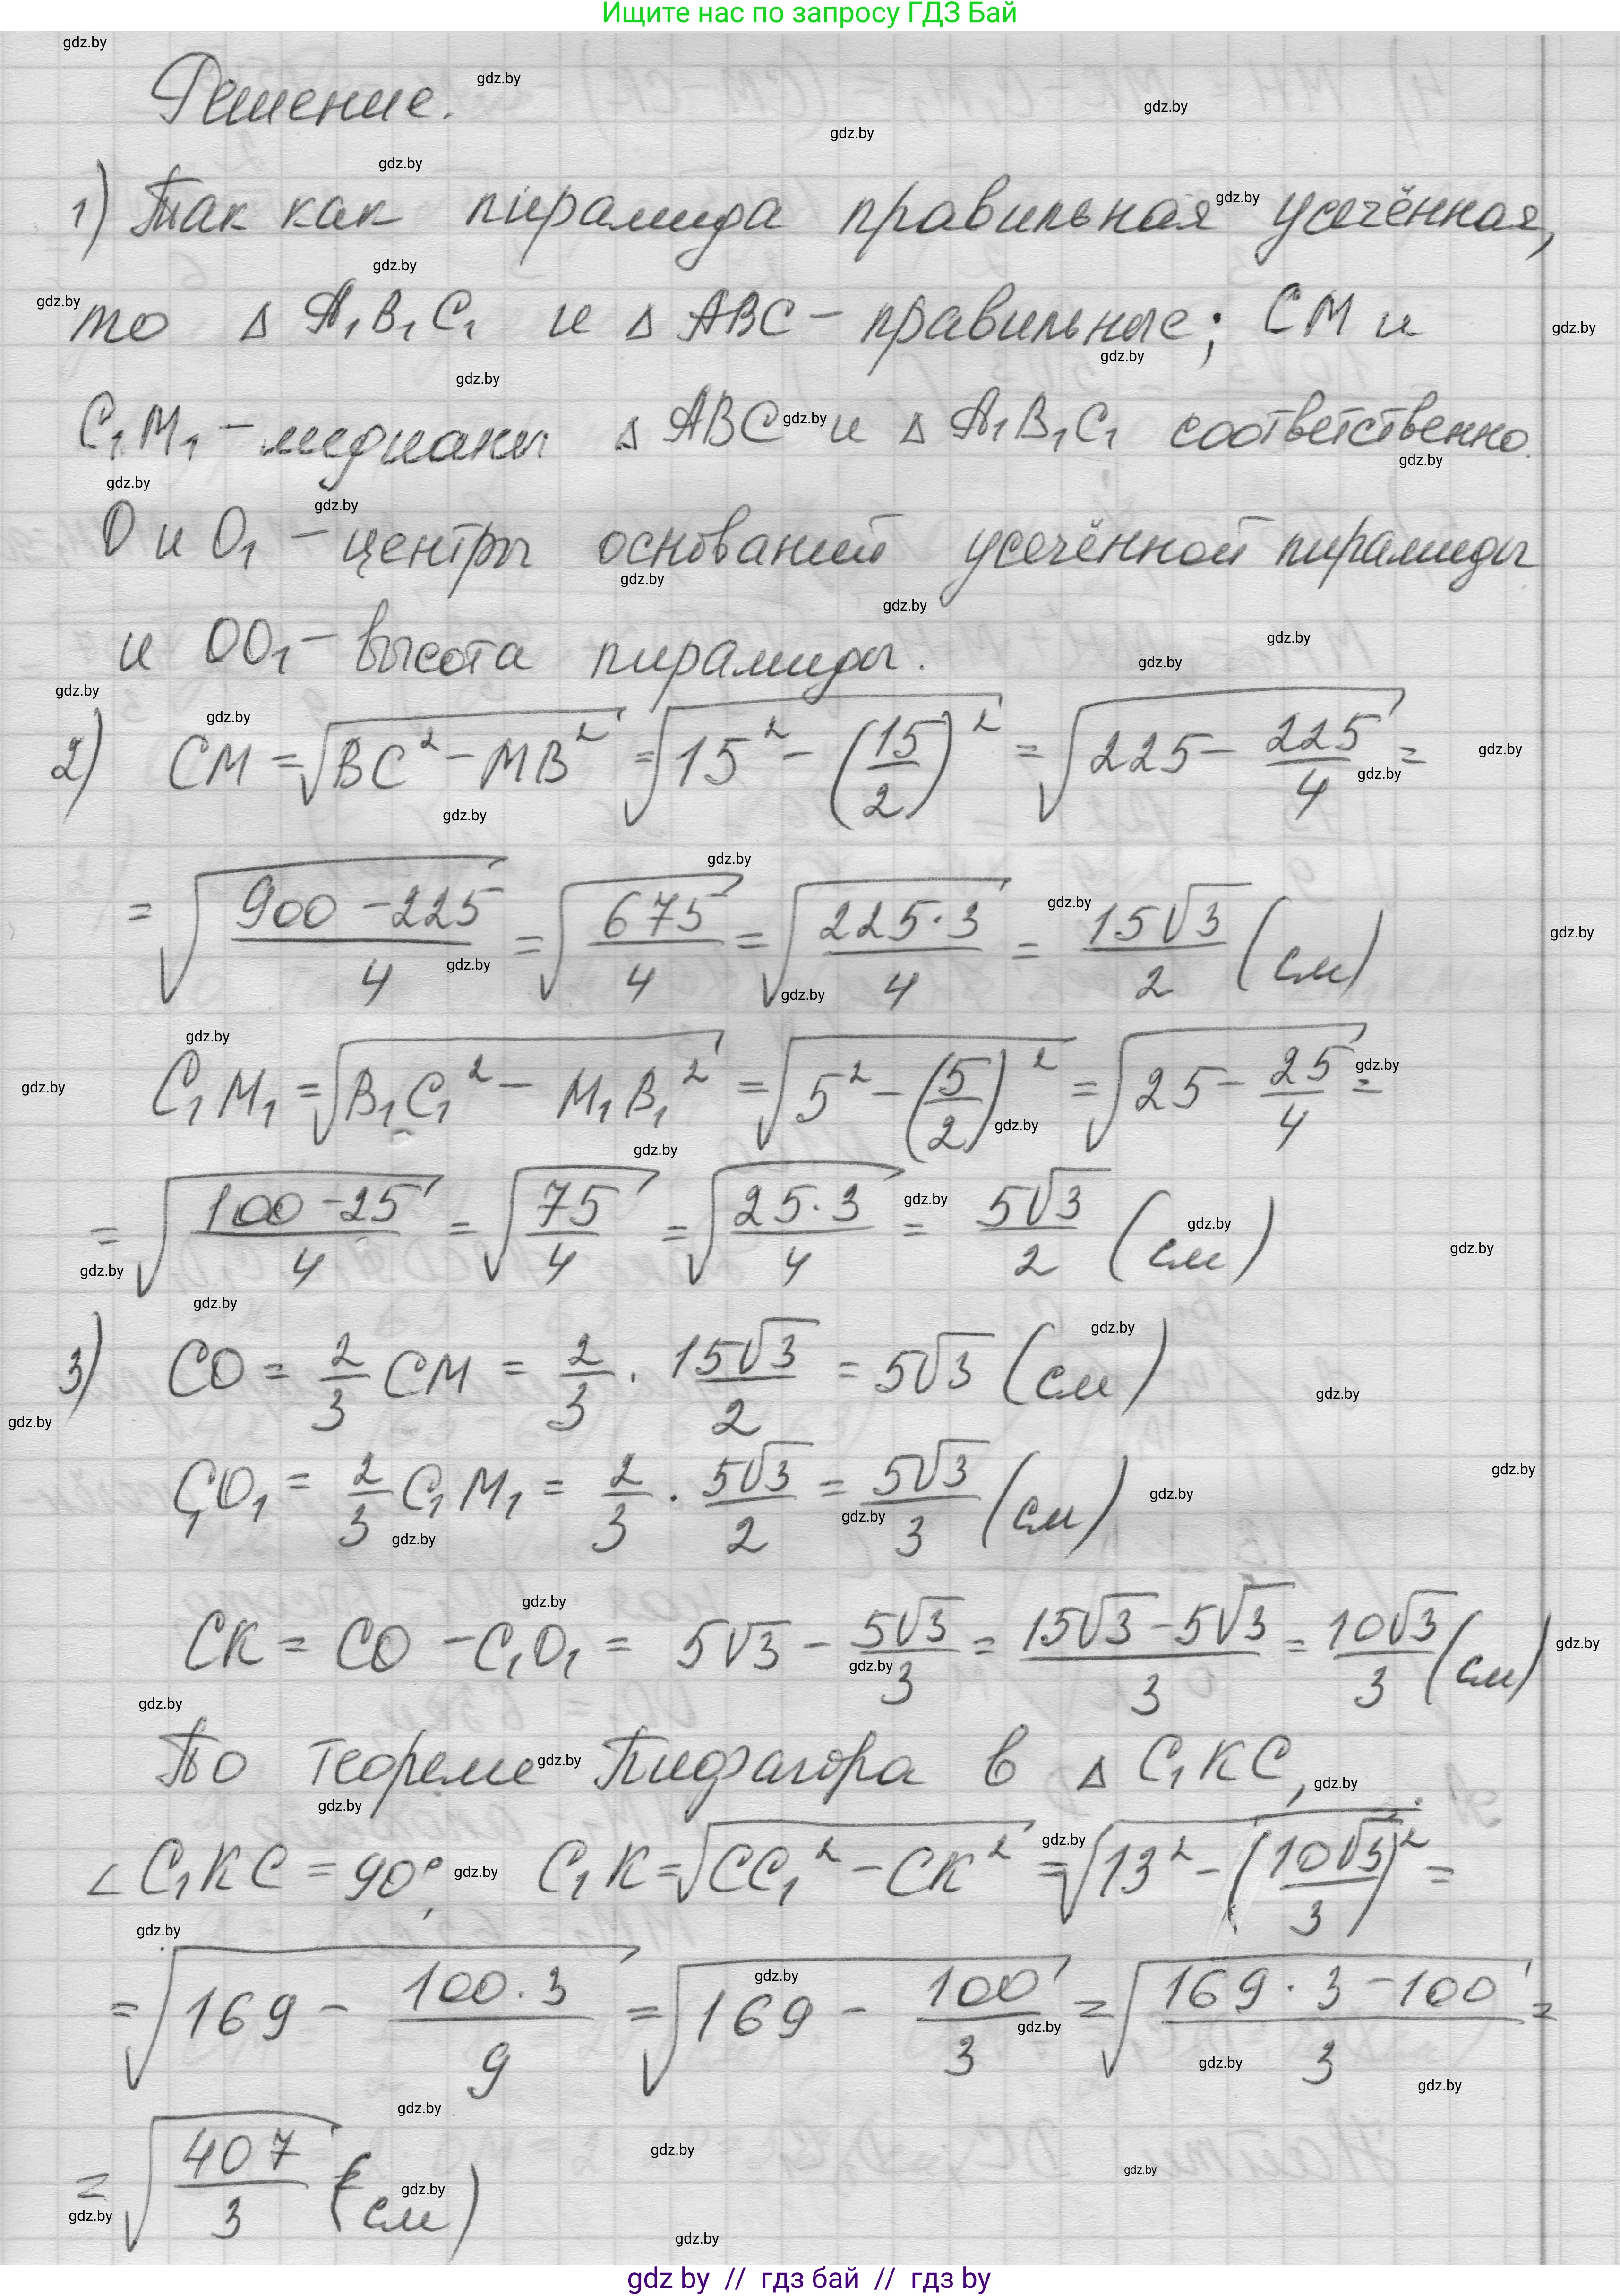 Ищите нас по запросу ГДЗ Бай
Решение.
1) Так как пирамида правильная усечённая,
то △ A₁B₁C₁ и △ ABC – правильные; CM и
C₁M₁ – медианы △ ABC и △ A₁B₁C₁ соответственно.
O и O₁ – центры оснований усечённой пирамиды
и OO₁ – высота пирамиды.
2) CM = √(BC² − MB²) = √(15² − (15/2)²) = √(225 − 225/4) =
= √((900 − 225)/4) = √(675/4) = √((225·3)/4) = 15√3/2 (см)
C₁M₁ = √(B₁C₁² − M₁B₁²) = √(5² − (5/2)²) = √(25 − 25/4) =
= √((100 − 25)/4) = √(75/4) = √((25·3)/4) = 5√3/2 (см)
3) CO = 2/3 CM = 2/3 · 15√3/2 = 5√3 (см)
C₁O₁ = 2/3 C₁M₁ = 2/3 · 5√3/2 = 5√3/3 (см)
CK = CO − C₁O₁ = 5√3 − 5√3/3 = (15√3 − 5√3)/3 = 10√3/3 (см)
По теореме Пифагора в △ C₁KC,
∠C₁KC = 90°, C₁K = √(CC₁² − CK²) = √(13² − (10√3/3)²) =
= √(169 − (100·3)/9) = √(169 − 100/3) = √((169·3 − 100)/3) =
= √(407/3) (см)
gdz by // гдз бай // гдз by